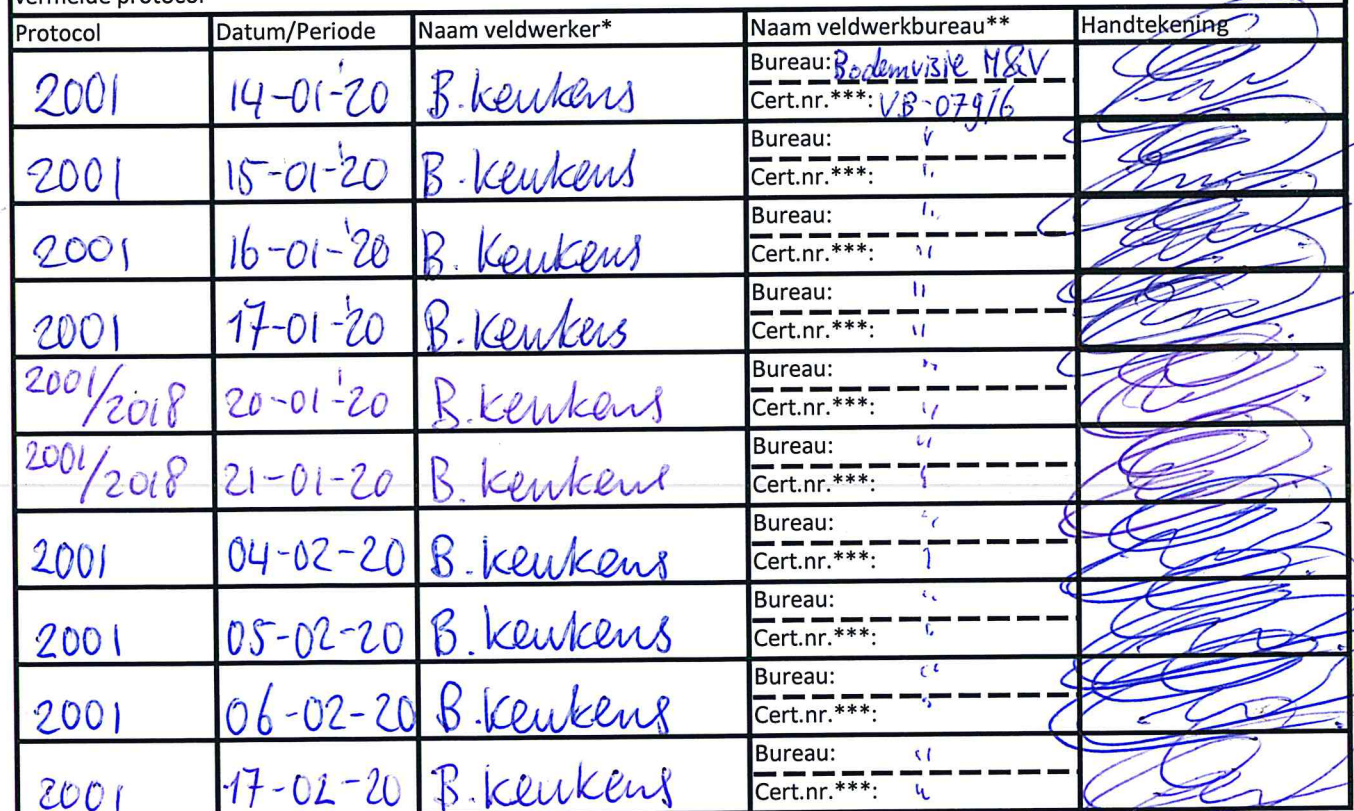 vermelde protocol
Protocol Datum/Periode Naam veldwerker* Naam veldwerkbureau** Handtekening
2001 14-01-'20 B. Keukens Bureau: Bodemvisie M&V
Cert.nr.***: VB-079/6
2001 15-01-'20 B. Keukens Bureau: "
Cert.nr.***: "
2001 16-01-'20 B. Keukens Bureau: "
Cert.nr.***: "
2001 17-01-'20 B. Keukens Bureau: "
Cert.nr.***: "
2001/2018 20-01-'20 B. Keukens Bureau: "
Cert.nr.***: "
2001/2018 21-01-20 B. Keukens Bureau: "
Cert.nr.***: "
2001 04-02-20 B. Keukens Bureau: "
Cert.nr.***: "
2001 05-02-20 B. Keukens Bureau: "
Cert.nr.***: "
2001 06-02-20 B. Keukens Bureau: "
Cert.nr.***: "
2001 17-02-20 B. Keukens Bureau: "
Cert.nr.***: "